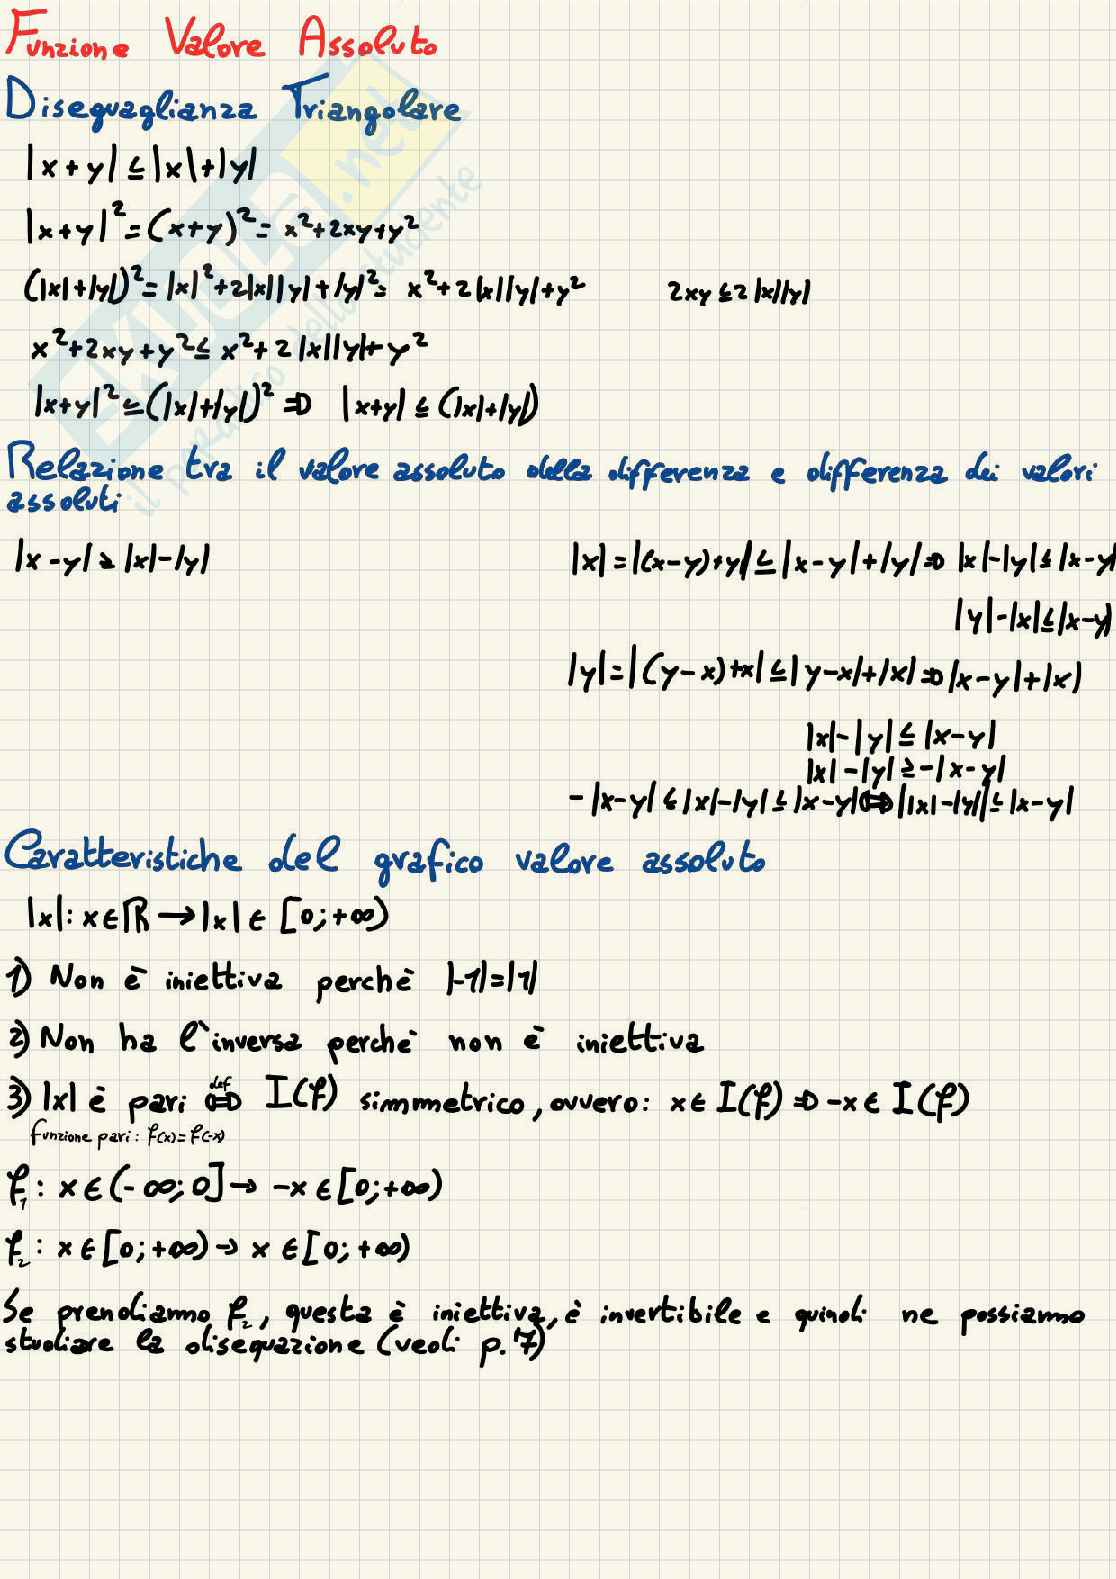 Funzione Valore Assoluto
Diseguaglianza Triangolare
|x+y| ≤ |x|+|y|
|x+y|² = (x+y)² = x²+2xy+y²
(|x|+|y|)² = |x|²+2|x||y|+|y|² = x²+2|x||y|+y² 2xy ≤ 2|x||y|
x²+2xy+y² ≤ x²+2|x||y|+y²
|x+y|² ≤ (|x|+|y|)² ⇒ |x+y| ≤ (|x|+|y|)
Relazione tra il valore assoluto della differenza e differenza dei valori
assoluti
|x-y| ≥ |x|-|y| |x| = |(x-y)+y| ≤ |x-y|+|y| ⇒ |x|-|y| ≤ |x-y|
|y|-|x| ≤ |x-y|
|y| = |(y-x)+x| ≤ |y-x|+|x| ⇒ |x-y|+|x|
|x|-|y| ≤ |x-y|
|x|-|y| ≥ -|x-y|
-|x-y| ≤ |x|-|y| ≤ |x-y| ⇔ ||x|-|y|| ≤ |x-y|
Caratteristiche del grafico valore assoluto
|x|: x∈ℝ → |x| ∈ [0;+∞)
1) Non è iniettiva perchè |-1|=|1|
2) Non ha l'inversa perchè non è iniettiva
3) |x| è pari def⇔ I(f) simmetrico, ovvero: x∈ I(f) ⇒ -x∈ I(f)
funzione pari: f(x)=f(-x)
f₁: x∈(-∞;0] → -x∈[0;+∞)
f₂: x∈[0;+∞) → x∈[0;+∞)
Se prendiamo f₂, questa è iniettiva, è invertibile e quindi ne possiamo
studiare la disequazione (vedi p.17)
SKUOLA.net
il paradiso dello studente